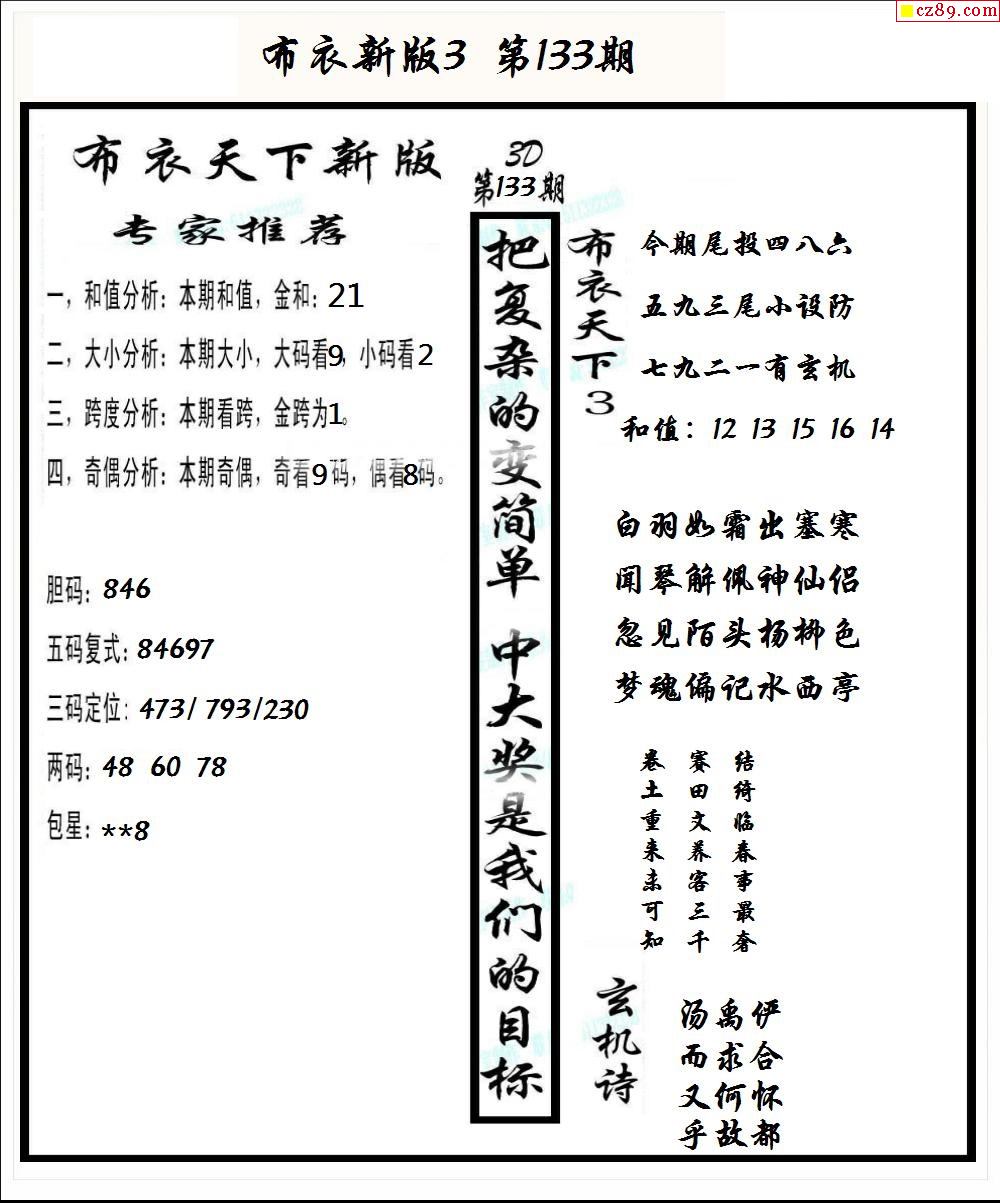 cz89.com
布衣新版3 第133期
布衣天下新版
专家推荐
一，和值分析：本期和值，金和：21
二，大小分析：本期大小，大码看9，小码看2
三，跨度分析：本期看跨，金跨为1。
四，奇偶分析：本期奇偶，奇看9码，偶看8码。
胆码：846
五码复式：84697
三码定位：473/ 793/230
两码：48 60 78
包星：**8
3D
第133期
把复杂的变简单 中大奖是我们的目标
布衣天下3
今期尾投四八六
五九三尾小设防
七九二一有玄机
和值：12 13 15 16 14
白羽如霜出塞寒
闻琴解佩神仙侣
忽见陌头杨柳色
梦魂偏记水西亭
结绮临春事最奢
赛田文养客三千
卷土重来未可知
玄机诗
汤禹俨
而求合
又何怀
乎故都